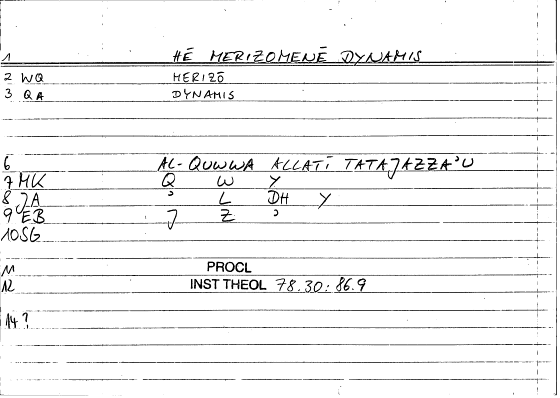 1 HĒ MERIZOMENĒ DYNAMIS
2 WQ MERIZŌ
3 QA DYNAMIS
6 AL-QUWWA ALLATĪ TATAJAZZA'U
7 MK Q W Y
8 JA ' L DH Y
9 EB J Z '
10 SG
11 PROCL
12 INST THEOL 78.30: 86.9
14 ?